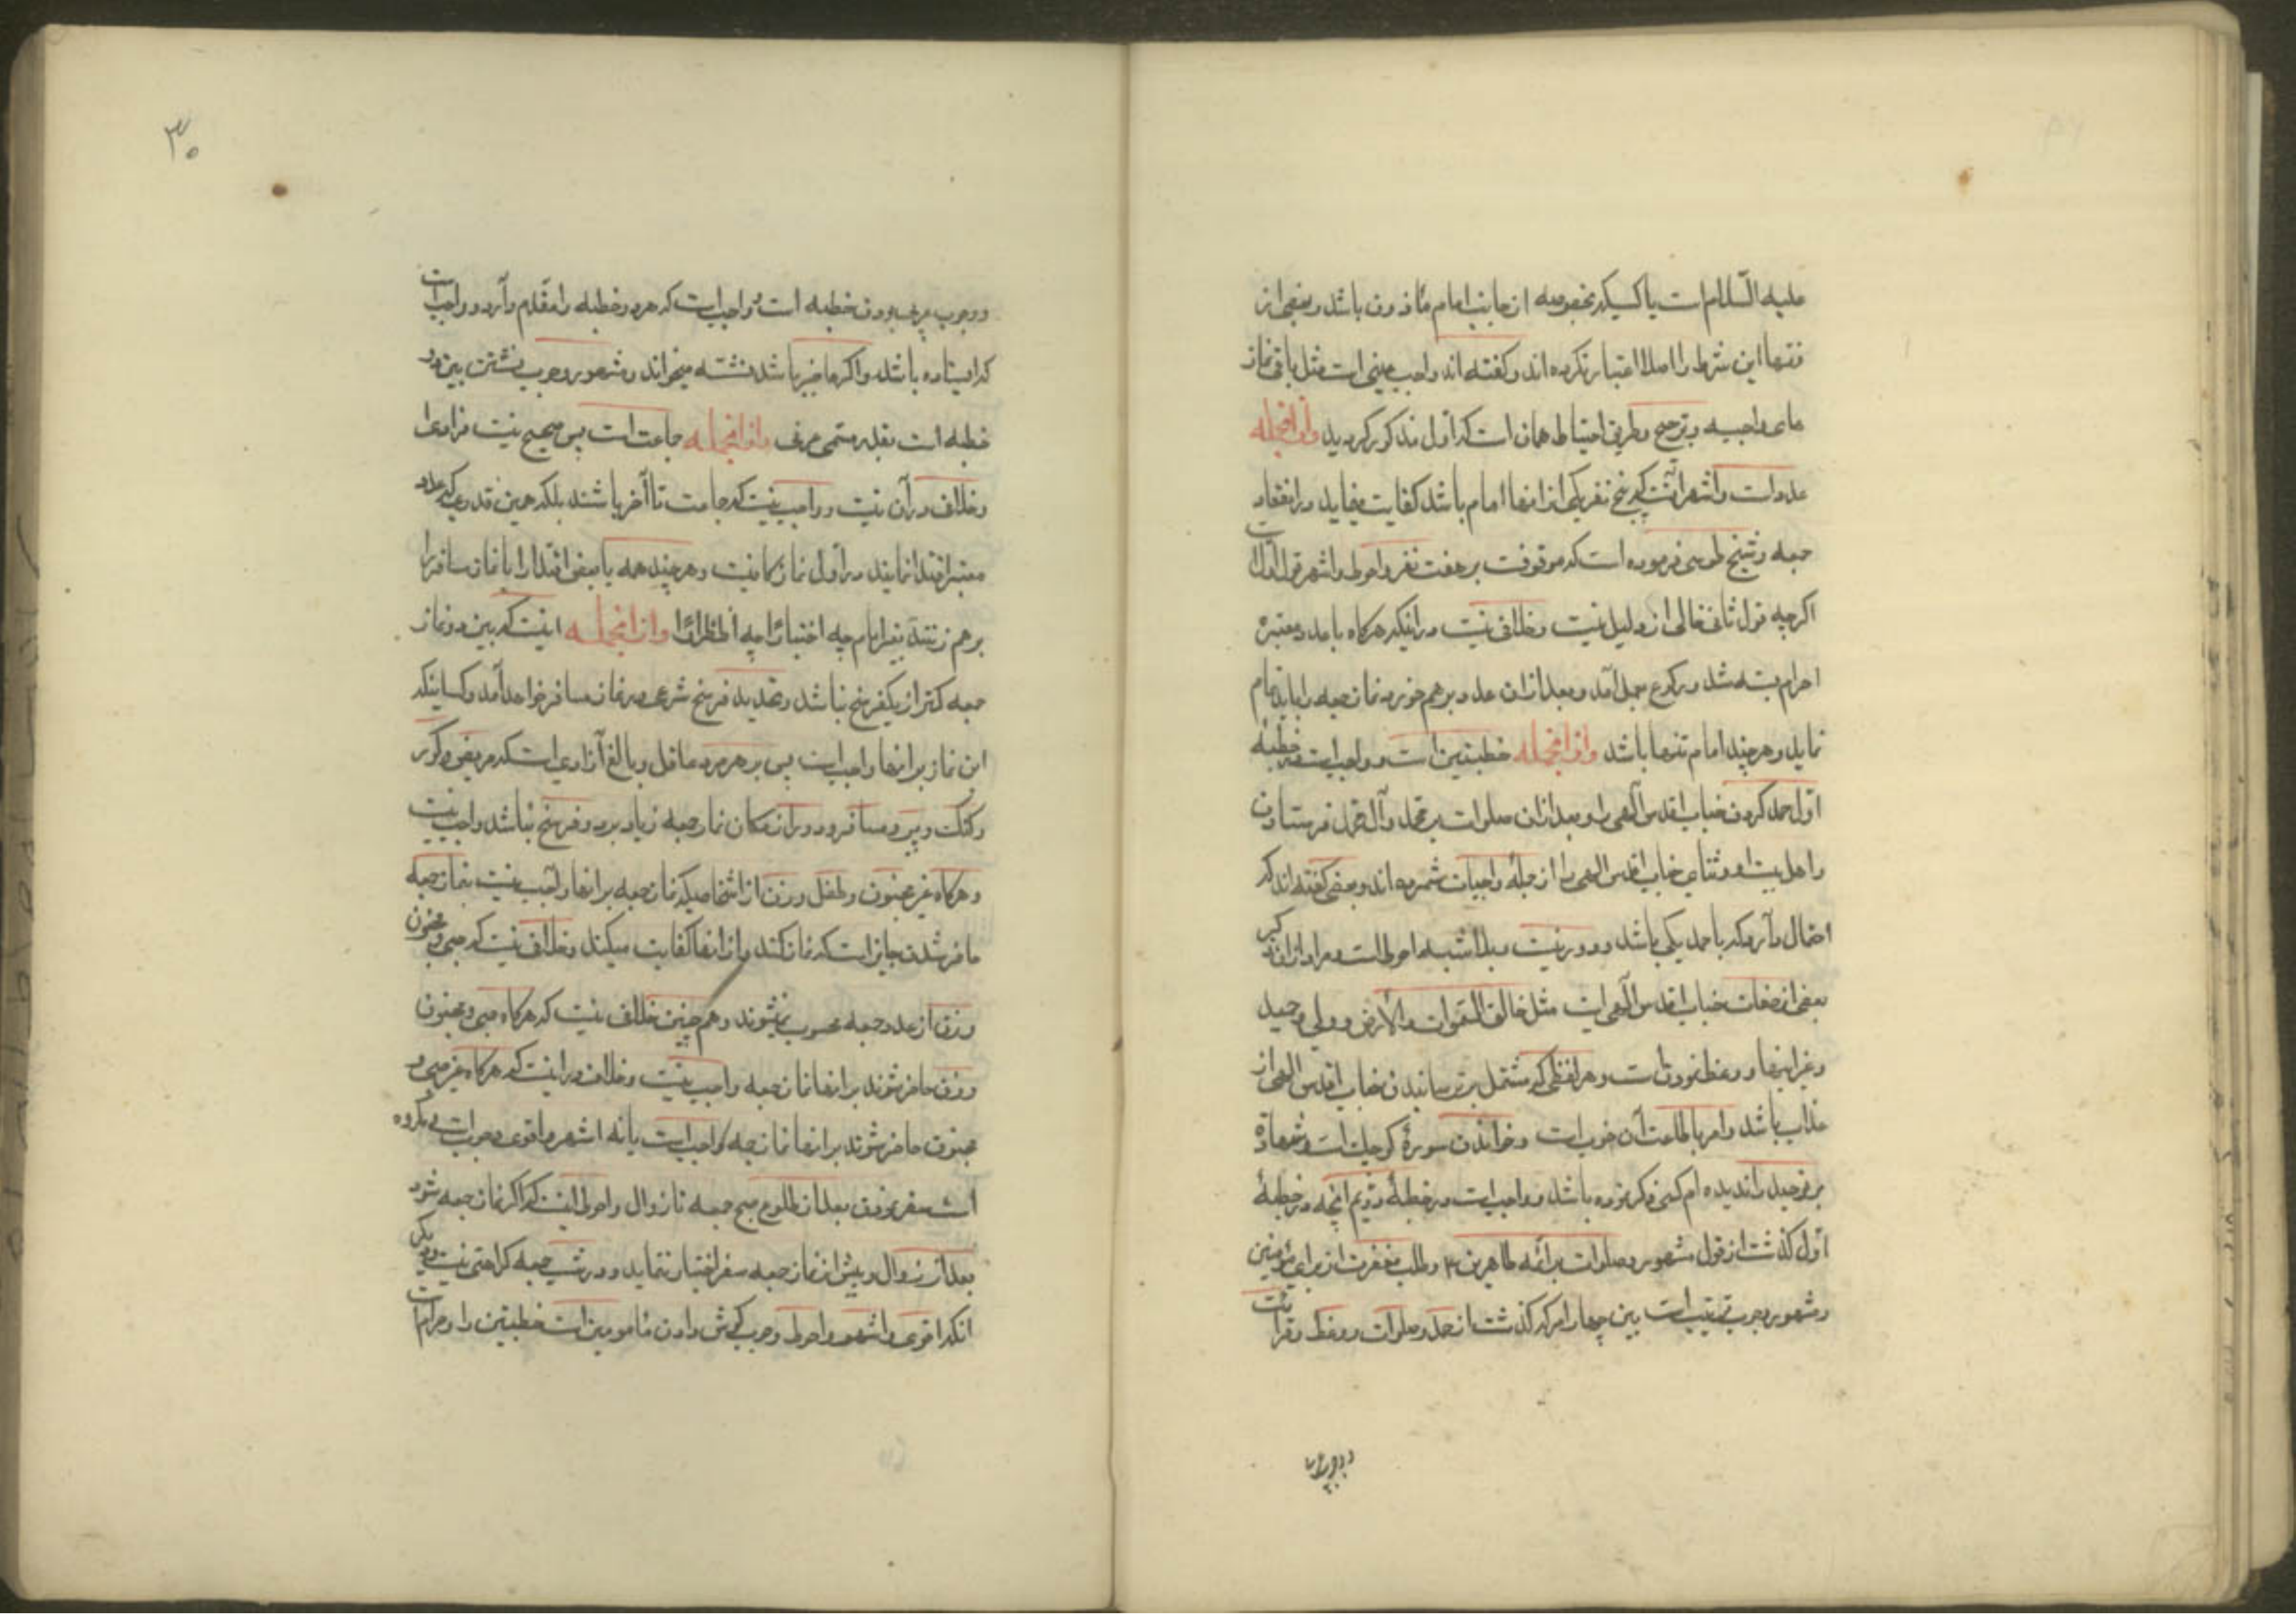 علیه السّلام است یا کسیکه بخصوصه از جانب امام مأذون باشد و بعضی از
فقها این شرط را اصلا اعتبار نکرده اند و کفته اند واجب عینی است مثل باقی نماز
های واجبیه و ترجیح وطریق احتیاط همان است که اول مذکور کردید وازانجمله
عدد است واشهر آنست که پنج نفر یکی از انها امام باشد کفایت مینماید در انعقاد
جمعه و شیخ طوسی فرموده است که موقوفست بر هفت نفر واحوط واشهر قول اول است
اکرچه قول ثانی خالی از دلیل نیست و خلافی نیست در اینکه هرکاه با عدد معتبره
احرام بسته شد و رکوع بعمل آمد و بعد از ان عدد بر هم خورد نماز جمعه را باید تمام
نماید و هر چند امام تنها باشد وازانجمله خطبتین است و واجبست در خطبهٔ
اوّل حمد کردن جناب اقدس آلهی را و بعد از ان صلوات بر محمد وآل محمد فرستادن
را هل بیت او و ثنای جناب اقدس الهی را از جملهٔ واجبات شمرده اند و بعضی کفته اند که
احتمال دارد که با حمد یکی باشد و دور نیست و بلا شبه احوط است و مراد از ان ذکر
بعضی از صفات جناب اقدس آلهی است مثل خالق السّموات والارض و ولی وحید
وغیر اینها و وعظ نمودن است و هر لفظی که مشتمل بر ترسانیدن جناب اقدس الهی از
عذاب باشد و امر باطاعت آن خوب است و خواندن سورهٔ کوچک است و شهادة
بر توحید را ندیده ام کسی ذکر نموده باشد و واجب است در خطبهٔ دویم آنچه در خطبهٔ
اوّل کذشت از قول مشهور و صلوات بر ائمه طاهرین ۴ و طلب مغفرت از برای مؤمنین
و مشهور وجوب ترتیب است بین چهار امر که کذشت از حمد و صلوات و وعظ و قرائت
و وجوب
۳۰
و وجوب عربی بودن خطبه است و واجب است که هر دو خطبه را مقدّم دارد و واجب است
که ایستاده باشد و اکر عاجز باشد نشسته میخواند و مشهور وجوب نشستن بین دو
خطبه است بقدر مسمی عرفی وازانجمله جماعت است پس صحیح نیست فرادی
و خلاف در آن نیست و واجب نیست که جماعت تا آخر باشند بلکه همین قدر که عدد
معتبر اقتدا نمایند در اول نماز کافیست و هر چند همه یا بعضی اقتدا را با نماز سافرا
بر هم زنند بغیر امام چه اختیارًا چه اضطرارًا وازانجمله اینست که بین دو نماز
جمعه کمتر از یکفرسخ نباشد و تحدید فرسخ شرعی در نماز مسافر خواهد آمد و کسانیکه
این نماز بر انها واجب است پس بر هر مرد عاقل و بالغ آزادی است که مریض و کور
و لنک و پیر و مسافر و دور از مکان نماز جمعه زیاد بر دو فرسخ نباشد واجب نیست
و هرکاه غیر مجنون و طفل و زن از اشخاصیکه نماز جمعه بر انها واجب نیست بنماز جمعه
حاضر شدند جایز است که نماز کنند و از انها کفایت میکند و خلافی نیست که صبی و مجنون
و زن از عدد جمعه محسوب نمیشوند و هم چنین خلاف نیست که هرکاه صبی و مجنون
و زن حاضر شوند بر انها نماز جمعه واجب نیست و خلاف در اینست که هرکاه غیر صبی و
مجنون حاضر شوند بر انها نماز جمعه واجب است یا نه اشهر و اقوی وجوب است و مکروه
است سفر نمودن بعد از طلوع صبح جمعه تا زوال و احوط اینست که اکر نماز جمعه شود
بعد از زوال و پیش از نماز جمعه سفر اختیار ننماید و در شب جمعه کراهتی نیست و دیکر
آنکه اقوی و اشهر و احوط وجوب کوش دادن مأمومین است خطبتین را و حرام است